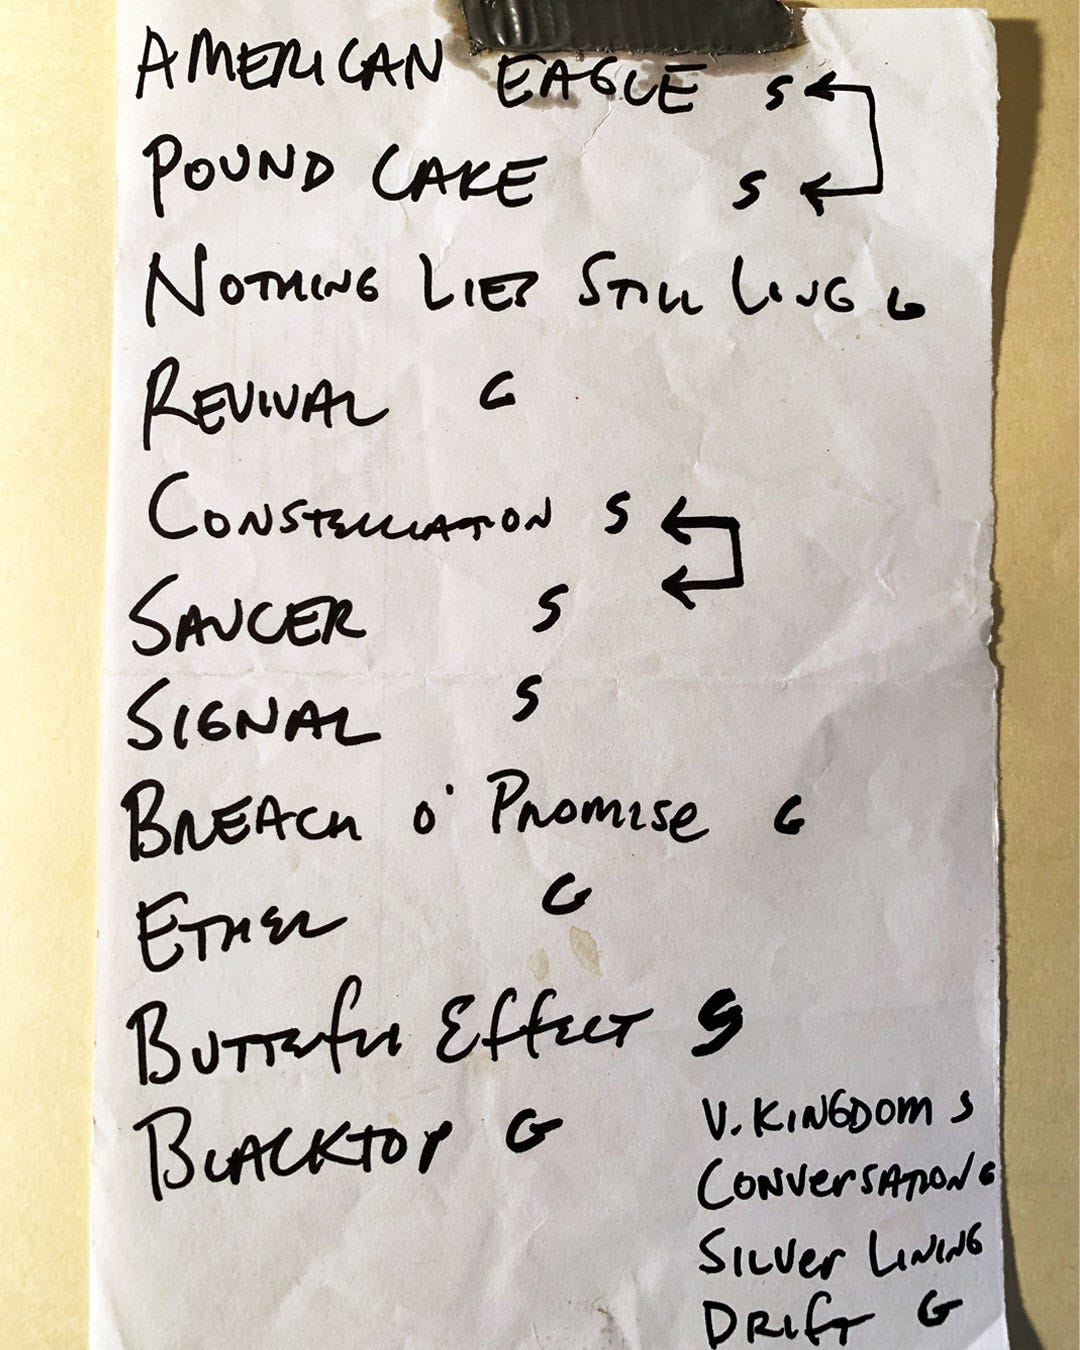 AMERICAN EAGLE S
POUND CAKE S
NOTHING LIES STILL LONG G
REVIVAL G
CONSTELLATION S
SAUCER S
SIGNAL S
BREACH O' PROMISE G
ETHER G
BUTTERFLY EFFECT S
BLACKTOP G
V. KINGDOM S
CONVERSATION G
SILVER LINING
DRIFT G